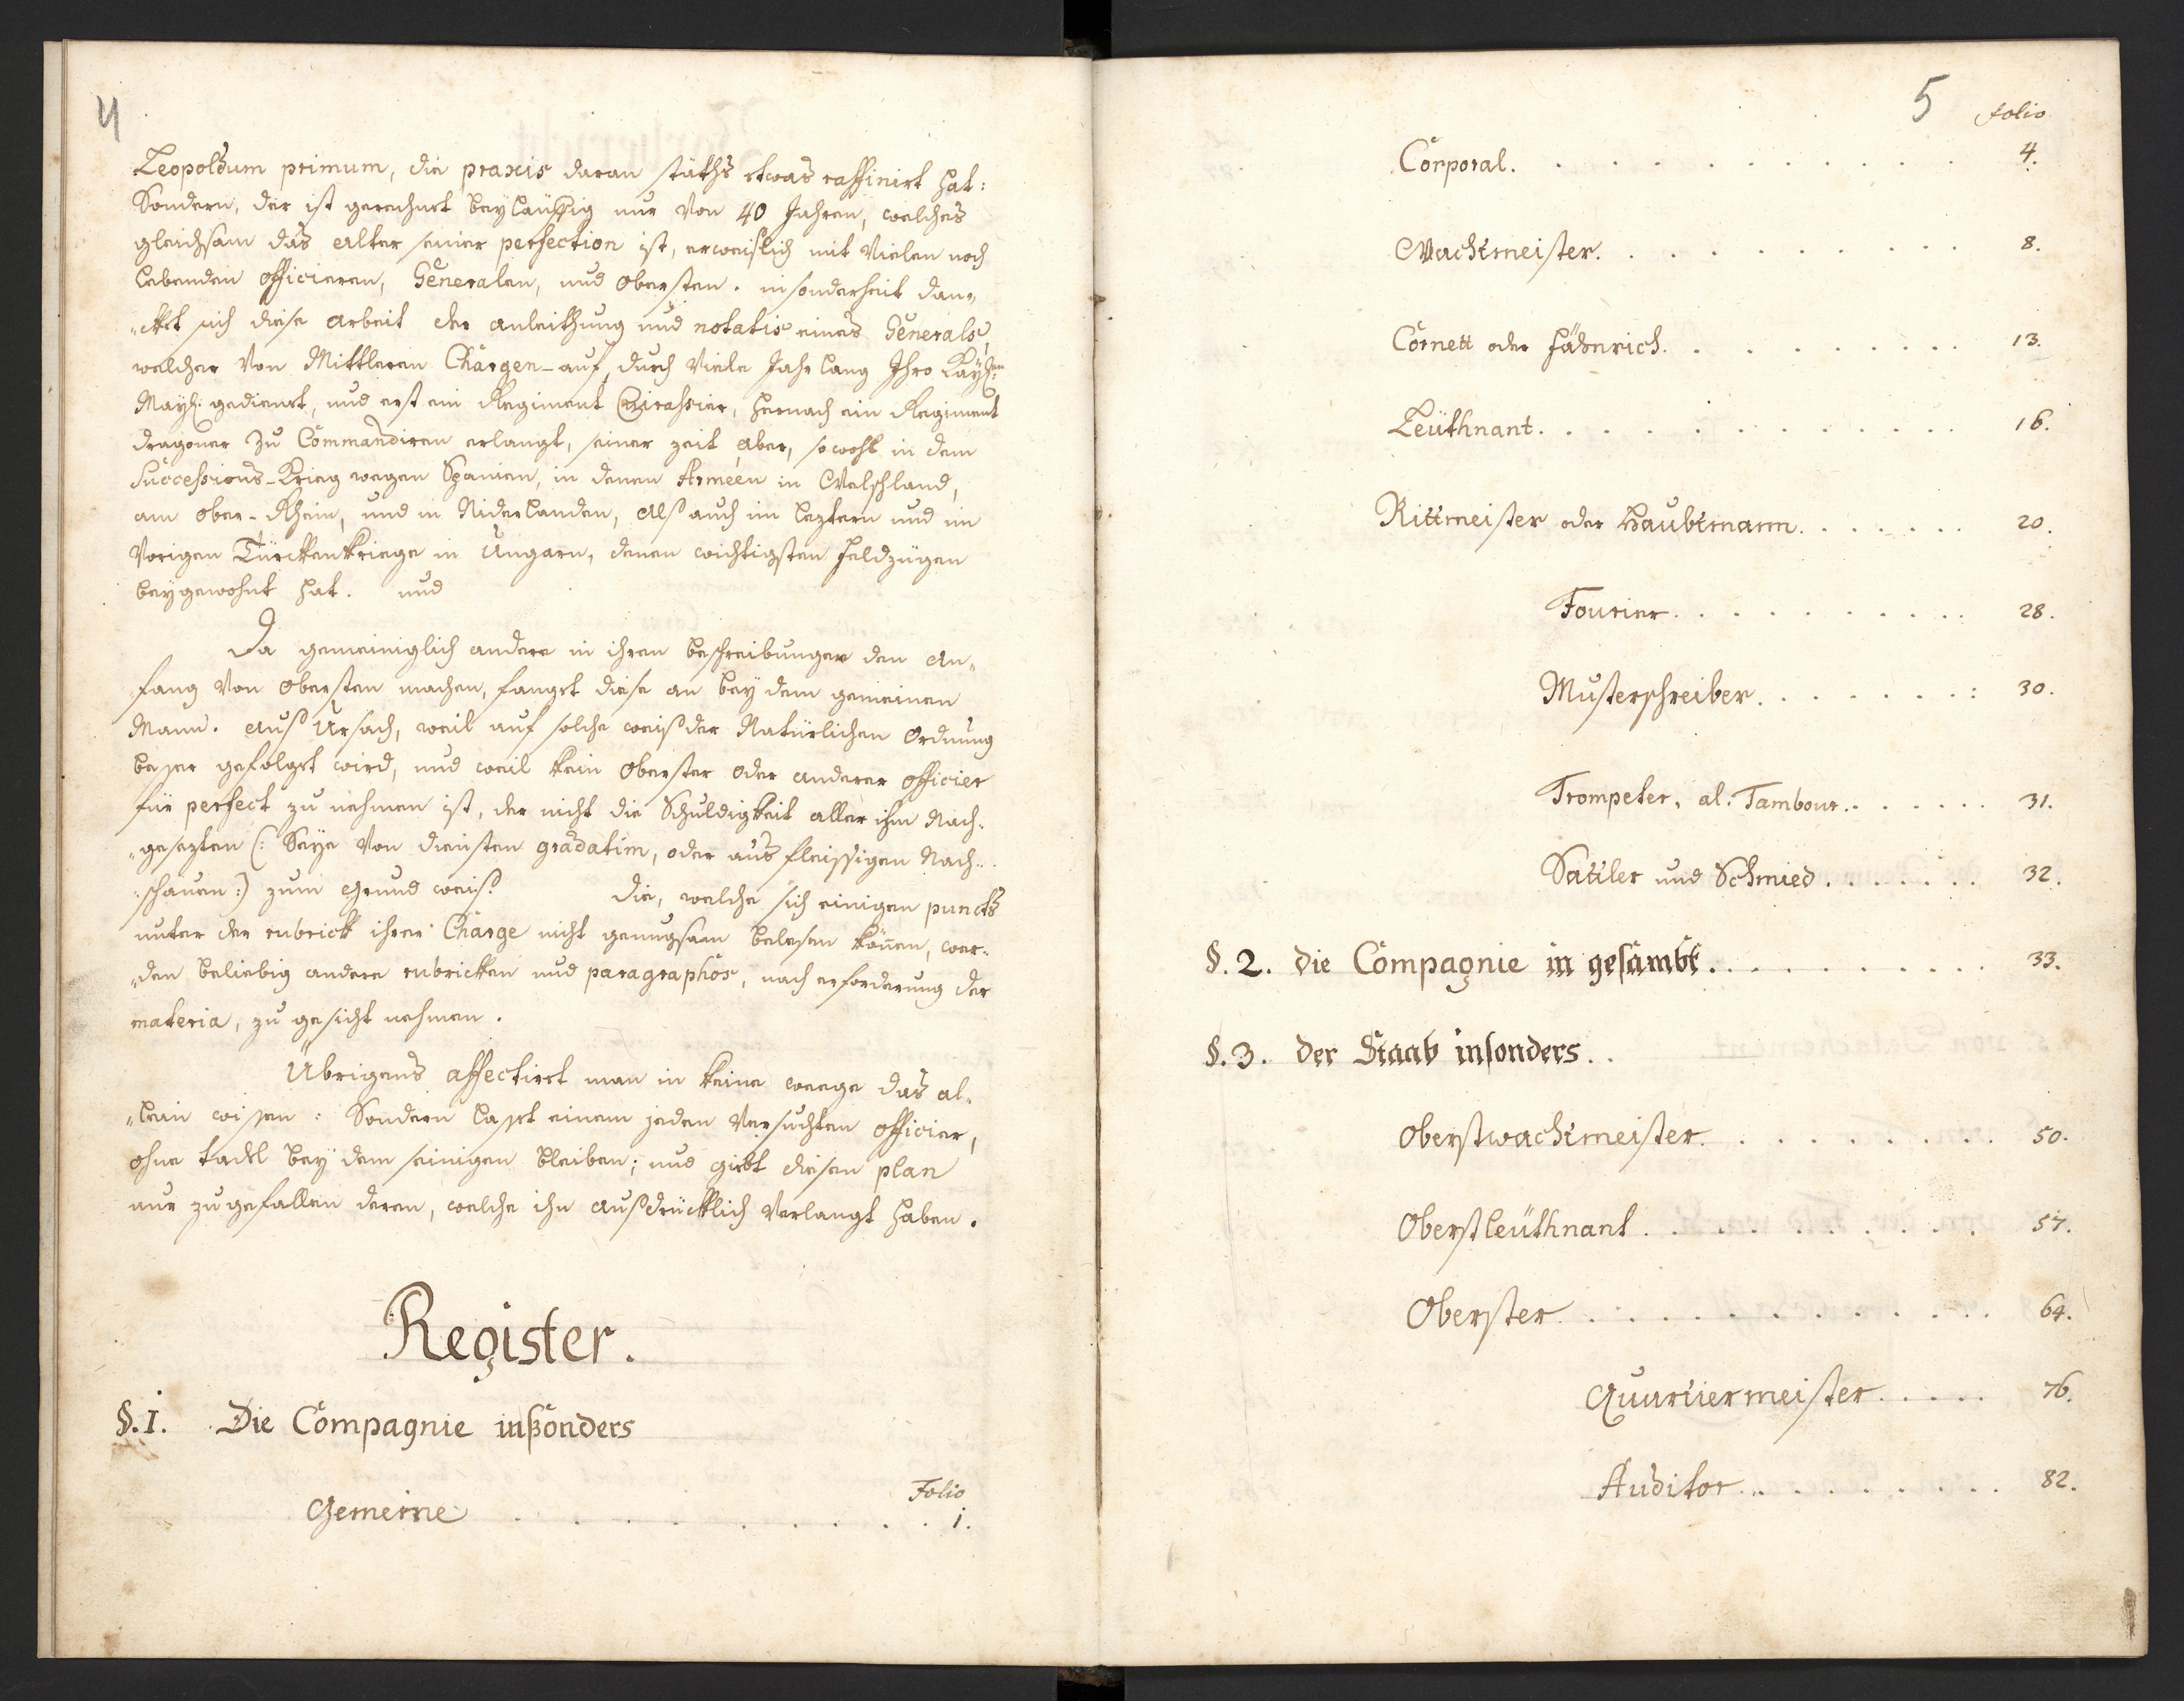 4
Leopoldum primum, die praxis daran stäths etwas raffinirt hat:
Sondern, der ist gerechnet beyläuffig nur von 40 Jahren, welches
gleichsam das alter seiner perfection ist, erweißlich mit vielen noch
lebenden officieren, Generalen, und obersten. insonderheit dan„
„cket sich diese arbeit der anleithung und notatis eines Generals,
welcher von Mittleren Chargen-auf, durch viele Jahr lang Ihro Kayl:en
Mayl: gedienet, und erst ein Regiment Cüirassier, hernach ein Regiment
dragoner zu Commandiren erlangt, seiner zeit aber, sowohl in dem
Successions-Krieg wegen Spanien, in denen Arméen in Welschland,
am ober-Rhein, und in Niderlanden, alß auch im leztern und im
vorigen Türckenkriege in Ungarn, denen wichtigsten feldzügen
beygewohnt hat. und
Da gemeiniglich andere in ihren beschreibungen den an„
fang von obersten machen, fanget diese an bey dem gemeinen
Mann. auß Ursach, weil auf solche weiß der Natürlichen ordnung
besser gefolget wird, und weil kein oberster oder anderer officier
für perfect zu nehmen ist, der nicht die Schuldigkeit aller ihm Nach„
„gesezten (: Seye von diensten gradatim, oder aus fleissigen Nach„
„schauen :) zum grund weiß. die, welche sich einigen puncts
unter der rubrick ihrer Charge nicht genugsam belesen können, wer„
„den beliebig andere rubricken und paragraphos, nach erforderung der
materia, zu gesicht nehmen.
Übrigens affectirt man in keine weege das al„
„lein wissen: Sondern lasset einem jeden versuchten officier,
ohne tadel bey dem seinigen bleiben; und giebt diesen plan
nur zu gefallen deren, welche ihn außdrücklich verlangt haben.
Register.
§.1. Die Compagnie inßonders
Folio
Gemeine . . . . . . . . . 1.
5
folio
Corporal. . . . . . . . . . 4.
Wachtmeister. . . . . . . . . 8.
Cornett oder Fähnrich. . . . . . . . 13.
Leüthnant. . . . . . . . . . 16.
Rittmeister oder Haubtmann. . . . . . . 20.
Fourier. . . . . . . . . . 28.
Musterschreiber. . . . . . . . : 30.
Trompeter, al: Tambour. . . . . . . 31.
Sattler und Schmied . . . . . . . 32.
§.2. die Compagnie in gesambt. . . . . . . . . . 33.
§.3. der Staab insonders. .
Oberstwachtmeister. . . . . . . . . 50.
Oberstleüthnant . . . . . . . . . 57.
Oberster. . . . . . . . . . . 64.
Quartiermeister. . . . . 76.
Auditor. . . . . . . . . 82.